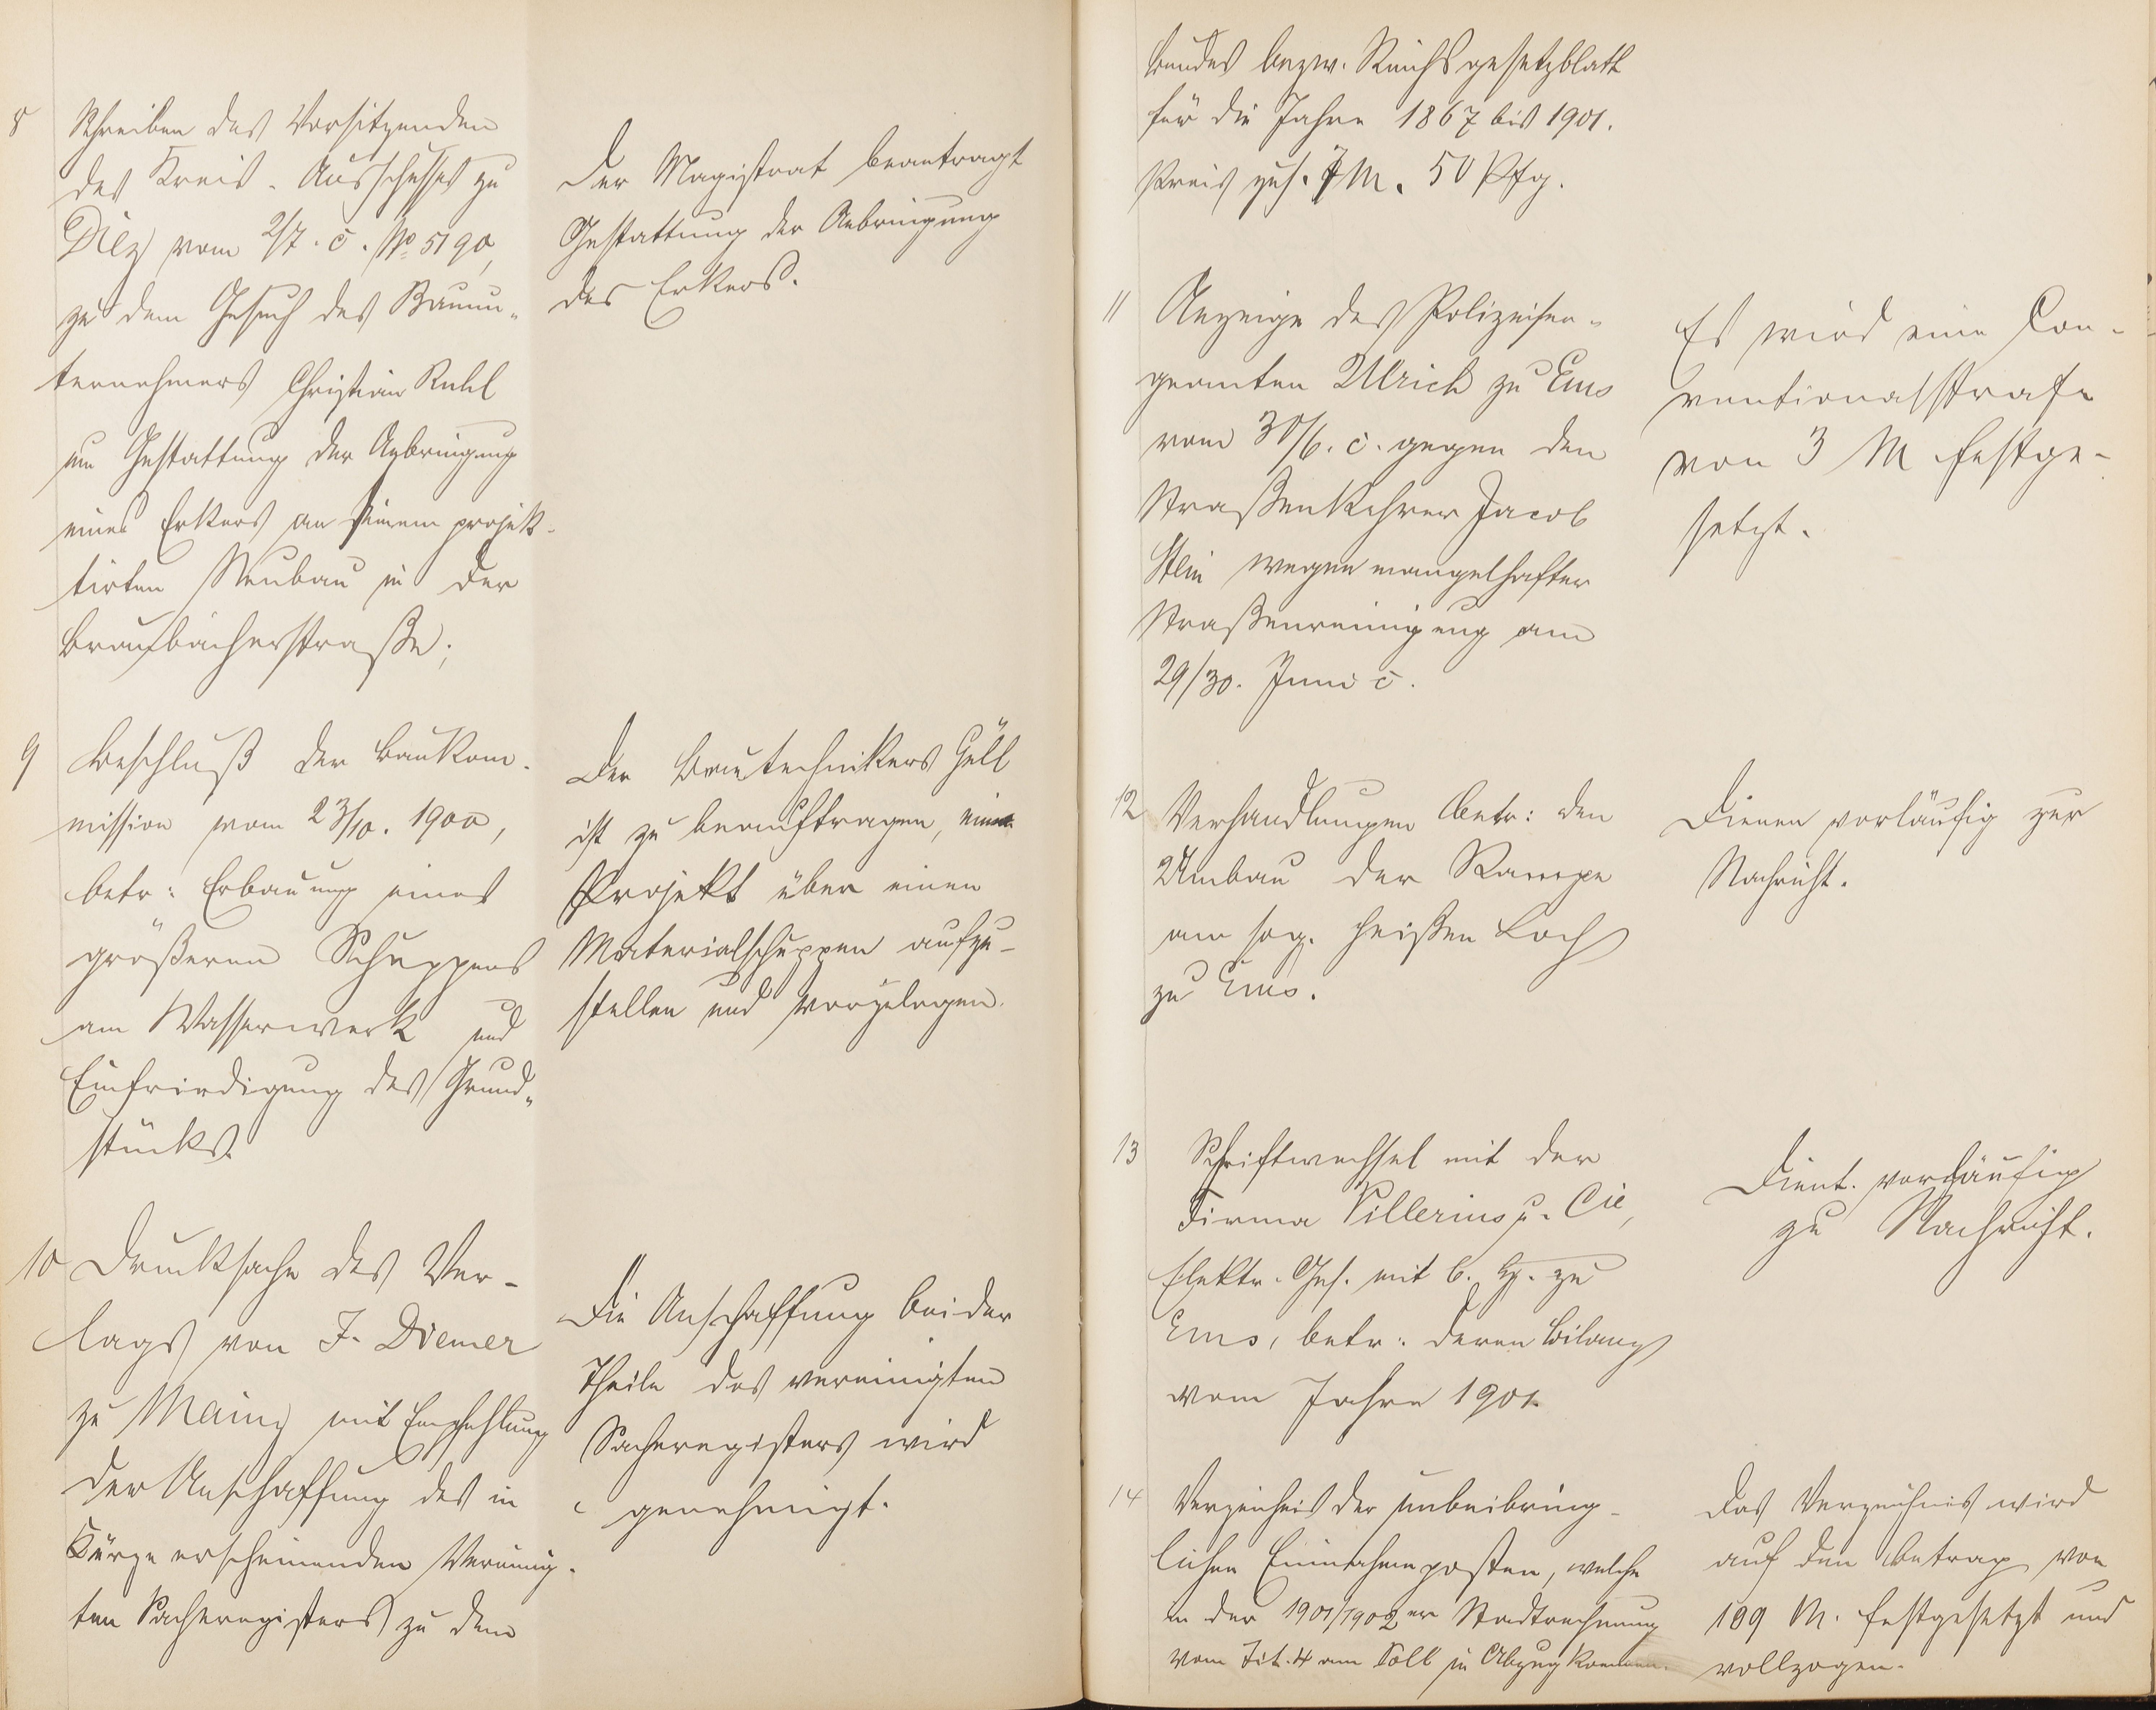 8 Schreiben des Vorsitzenden
des Kreis-Ausschusses zu
Diez vom 2/7. c. No 5190,
zu dem Gesuch des Bauun-
ternehmers Christian Ruhl
um Gestattung der Anbringung
eines Erkers an seinem projek-
tirten Neubau in der
Braubacherstraße;
Der Magistrat beantragt
Gestattung der Anbringung
des Erkers.
9 Beschluß der Baukom-
mission vom 23/10. 1900,
betr: Erbauung eines
größeren Schuppens
am Wasserwerk und
Einfriedigung des Grund-
stücks.
Der Bautechnikers
ist zu beauftragen, ein
Projekt über einen
Materialschuppen aufzu-
stellen und vorzulegen.
10 Drucksache des Ver-
lags von J. Diemer
zu Mainz mit Empfehlung
der Anschaffung des in
Kürze erscheinenden Vereinig-
ten Sachregisters zu dem
Die Anschaffung beider
Theile des vereinigten
Sachregisters wird
genehmigt.
Bundes bezw. Reichsgesetzblatt
für die Jahre 1867 bis 1901.
Preis zus. 7 M. 50 Pfg.
11 Anzeige des Polizeiser-
geanten Ulrich zu Ems
vom 30/6. c. gegen den
Straßenkehrer Jacob
Stein wegen mangelhafter
Straßenreinigung am
29/30. Juni c.
Es wird eine Con-
ventionalstrafe
von 3 M festge-
setzt.
12 Verhandlungen betr: den
Umbau der Rampe
am sog. heißen Loch
zu Ems.
Dienen vorläufig zur
Nachricht.
13 Schriftwechsel mit der
Firma Villerius u. Cie,
Elektr. Ges. mit b. H. zu
Ems, betr: deren Bilanz
vom Jahre 1901.
Dient vorläufig
zu Nachricht.
14 Verzeichnis der unbeibring-
lichen Einnahmeposten, welche
in der 1901/1902er Stadtrechnung
vom Tit. 4 am Soll in Abzug kommen.
Das Verzeichnis wird
auf den Betrag von
189 M. festgesetzt und
vollzogen.